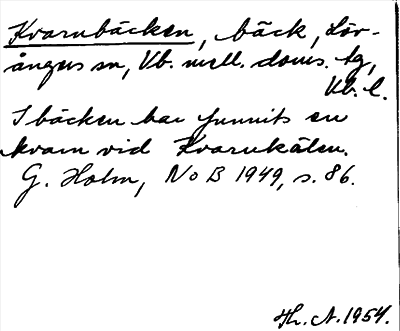 Kvarnbäcken, bäck, Löv-
ångers sn, Vb. mell. doms. tg,
Vb. l.
I bäcken har funnits en
kvarn vid Kvarnkälen.
G. Holm, NoB 1949, s. 86.
Hr. A. 1954.